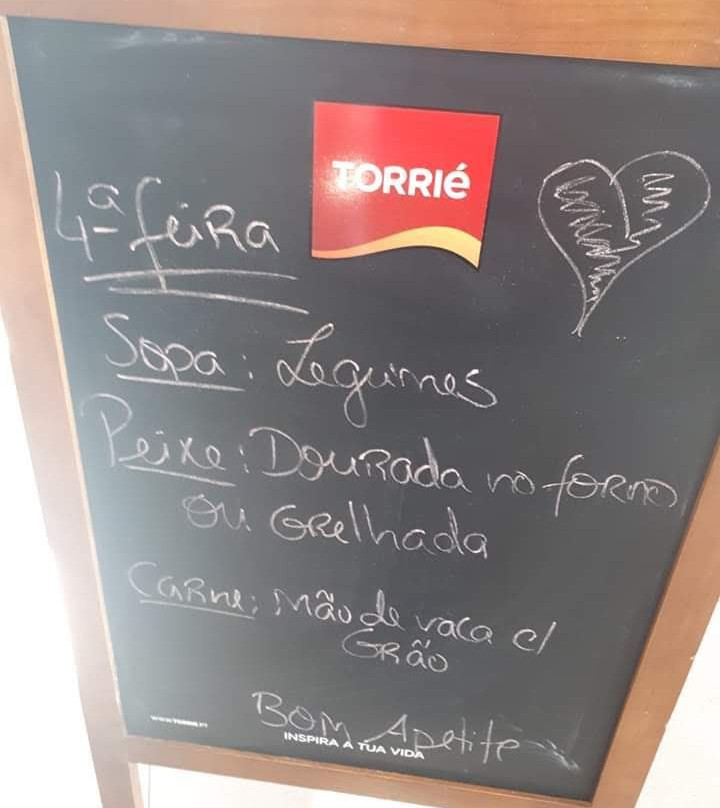 TORRIé
4ª feira
Sopa: Legumes
Peixe: Dourada no forno
ou Grelhada
Carne: Mão de vaca c/
Grão
Bom Apetite
WWW.TORRIE.PT
INSPIRA A TUA VIDA